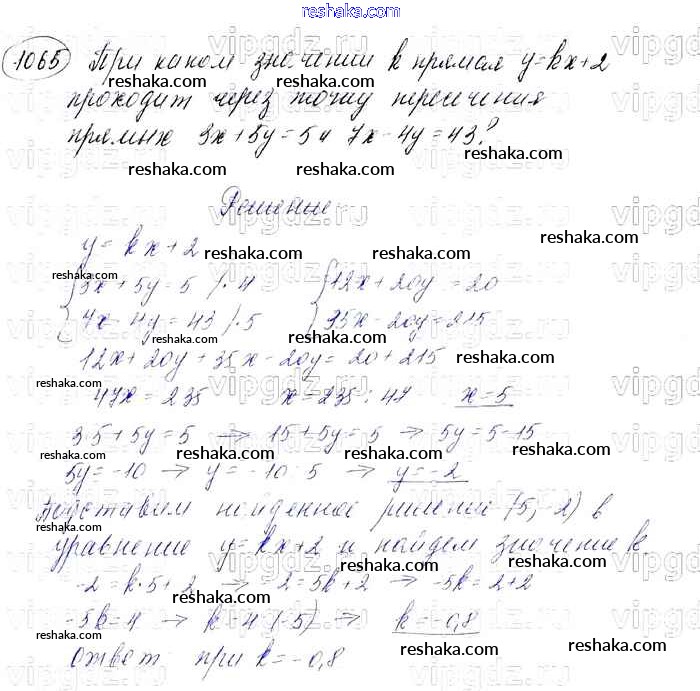 1065 При каком значении k прямая y=kx+2
проходит через точку пересечения
прямых 3x+5y=5 и 7x-4y=43?
Решение
y=kx+2
3x+5y=5 /·4 12x+20y=20
7x-4y=43 /·5 35x-20y=215
12x+20y+35x-20y=20+215
47x=235 x=235:47 x=5
3·5+5y=5 → 15+5y=5 → 5y=5-15
5y=-10 → y=-10:5 → y=-2
Подставим найденное решение (5;-2) в
уравнение y=kx+2 и найдем значение k
-2=k·5+2 → -2=5k+2 → -5k=2+2
-5k=4 → k=4:(-5) → k=-0,8
Ответ при k=-0,8
reshaka.com
vipgdz.ru